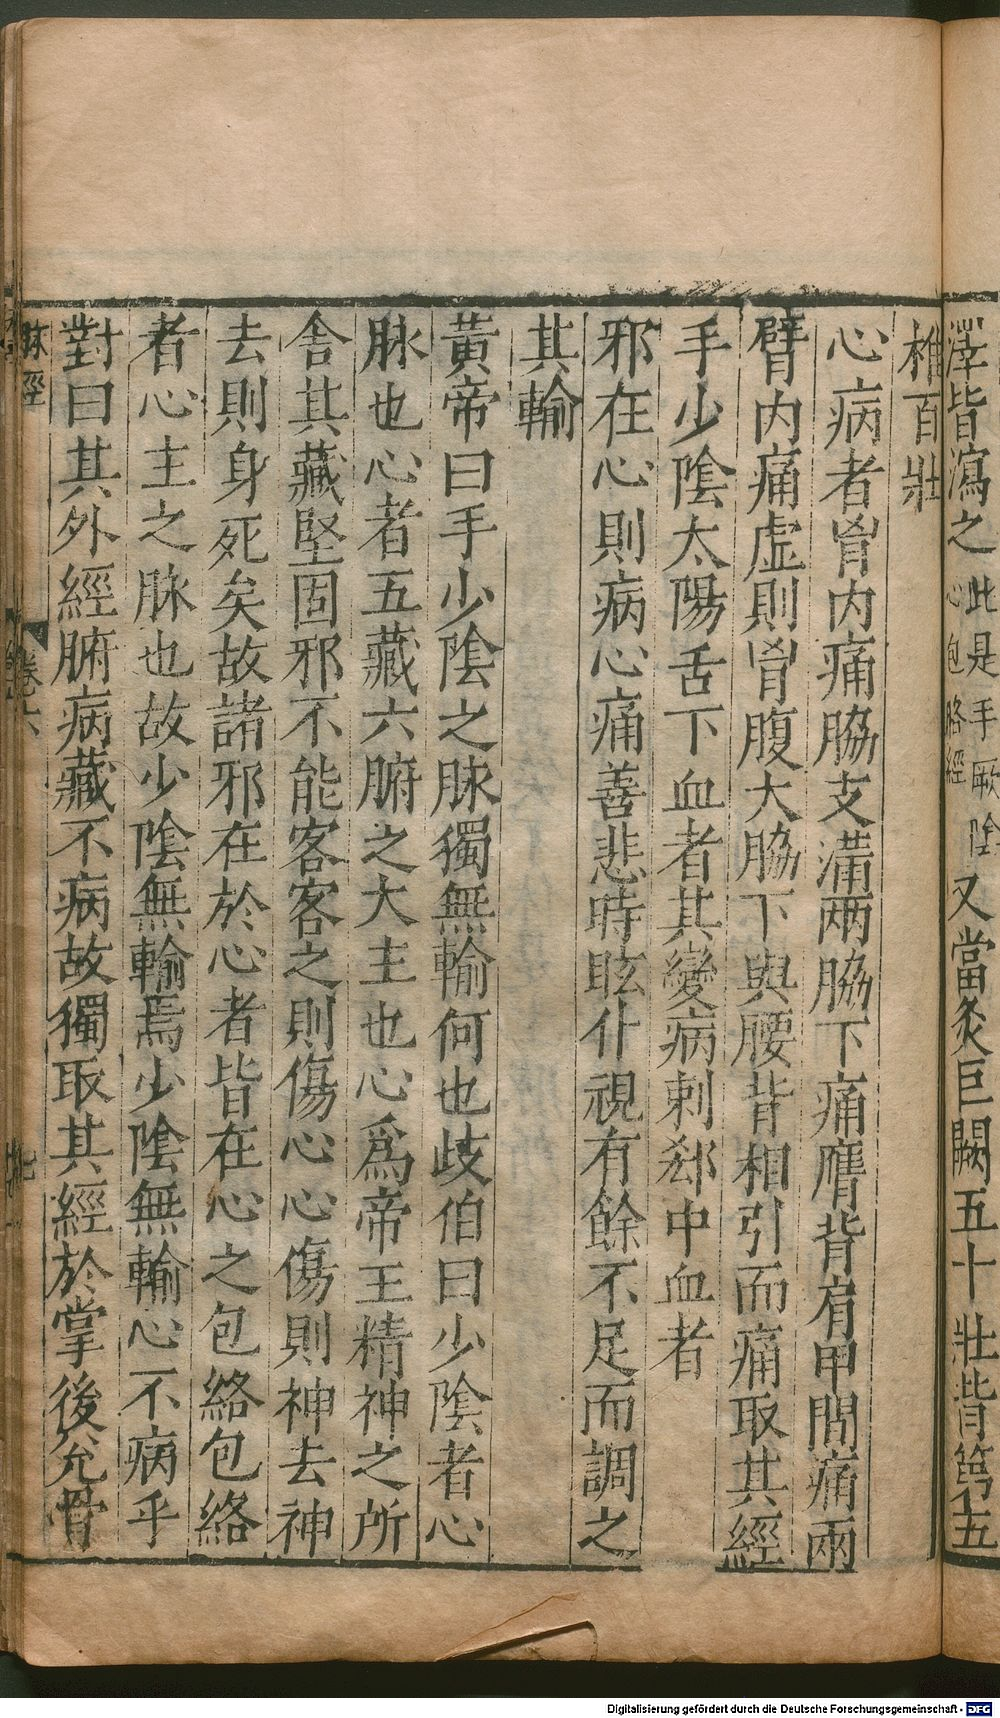 澤皆瀉之此是手厥陰心包絡經又當灸巨闕五十壯背第五
椎百壯
心病者胷內痛脇支滿兩脇下痛膺背肩甲間痛兩
臂內痛虛則胷腹大脇下與腰背相引而痛取其經
手少陰太陽舌下血者其變病刺郄中血者
邪在心則病心痛善悲時眩仆視有餘不足而調之
其輸
黃帝曰手少陰之脉獨無輸何也歧伯曰少陰者心
脉也心者五藏六腑之大主也心爲帝王精神之所
舍其藏堅固邪不能客客之則傷心心傷則神去神
去則身死矣故諸邪在於心者皆在心之包絡包絡
者心主之脉也故少陰無輸焉少陰無輸心不病乎
對曰其外經腑病藏不病故獨取其經於掌後兊骨
脉經
卷六
七
Digitalisierung gefördert durch die Deutsche Forschungsgemeinschaft - DFG